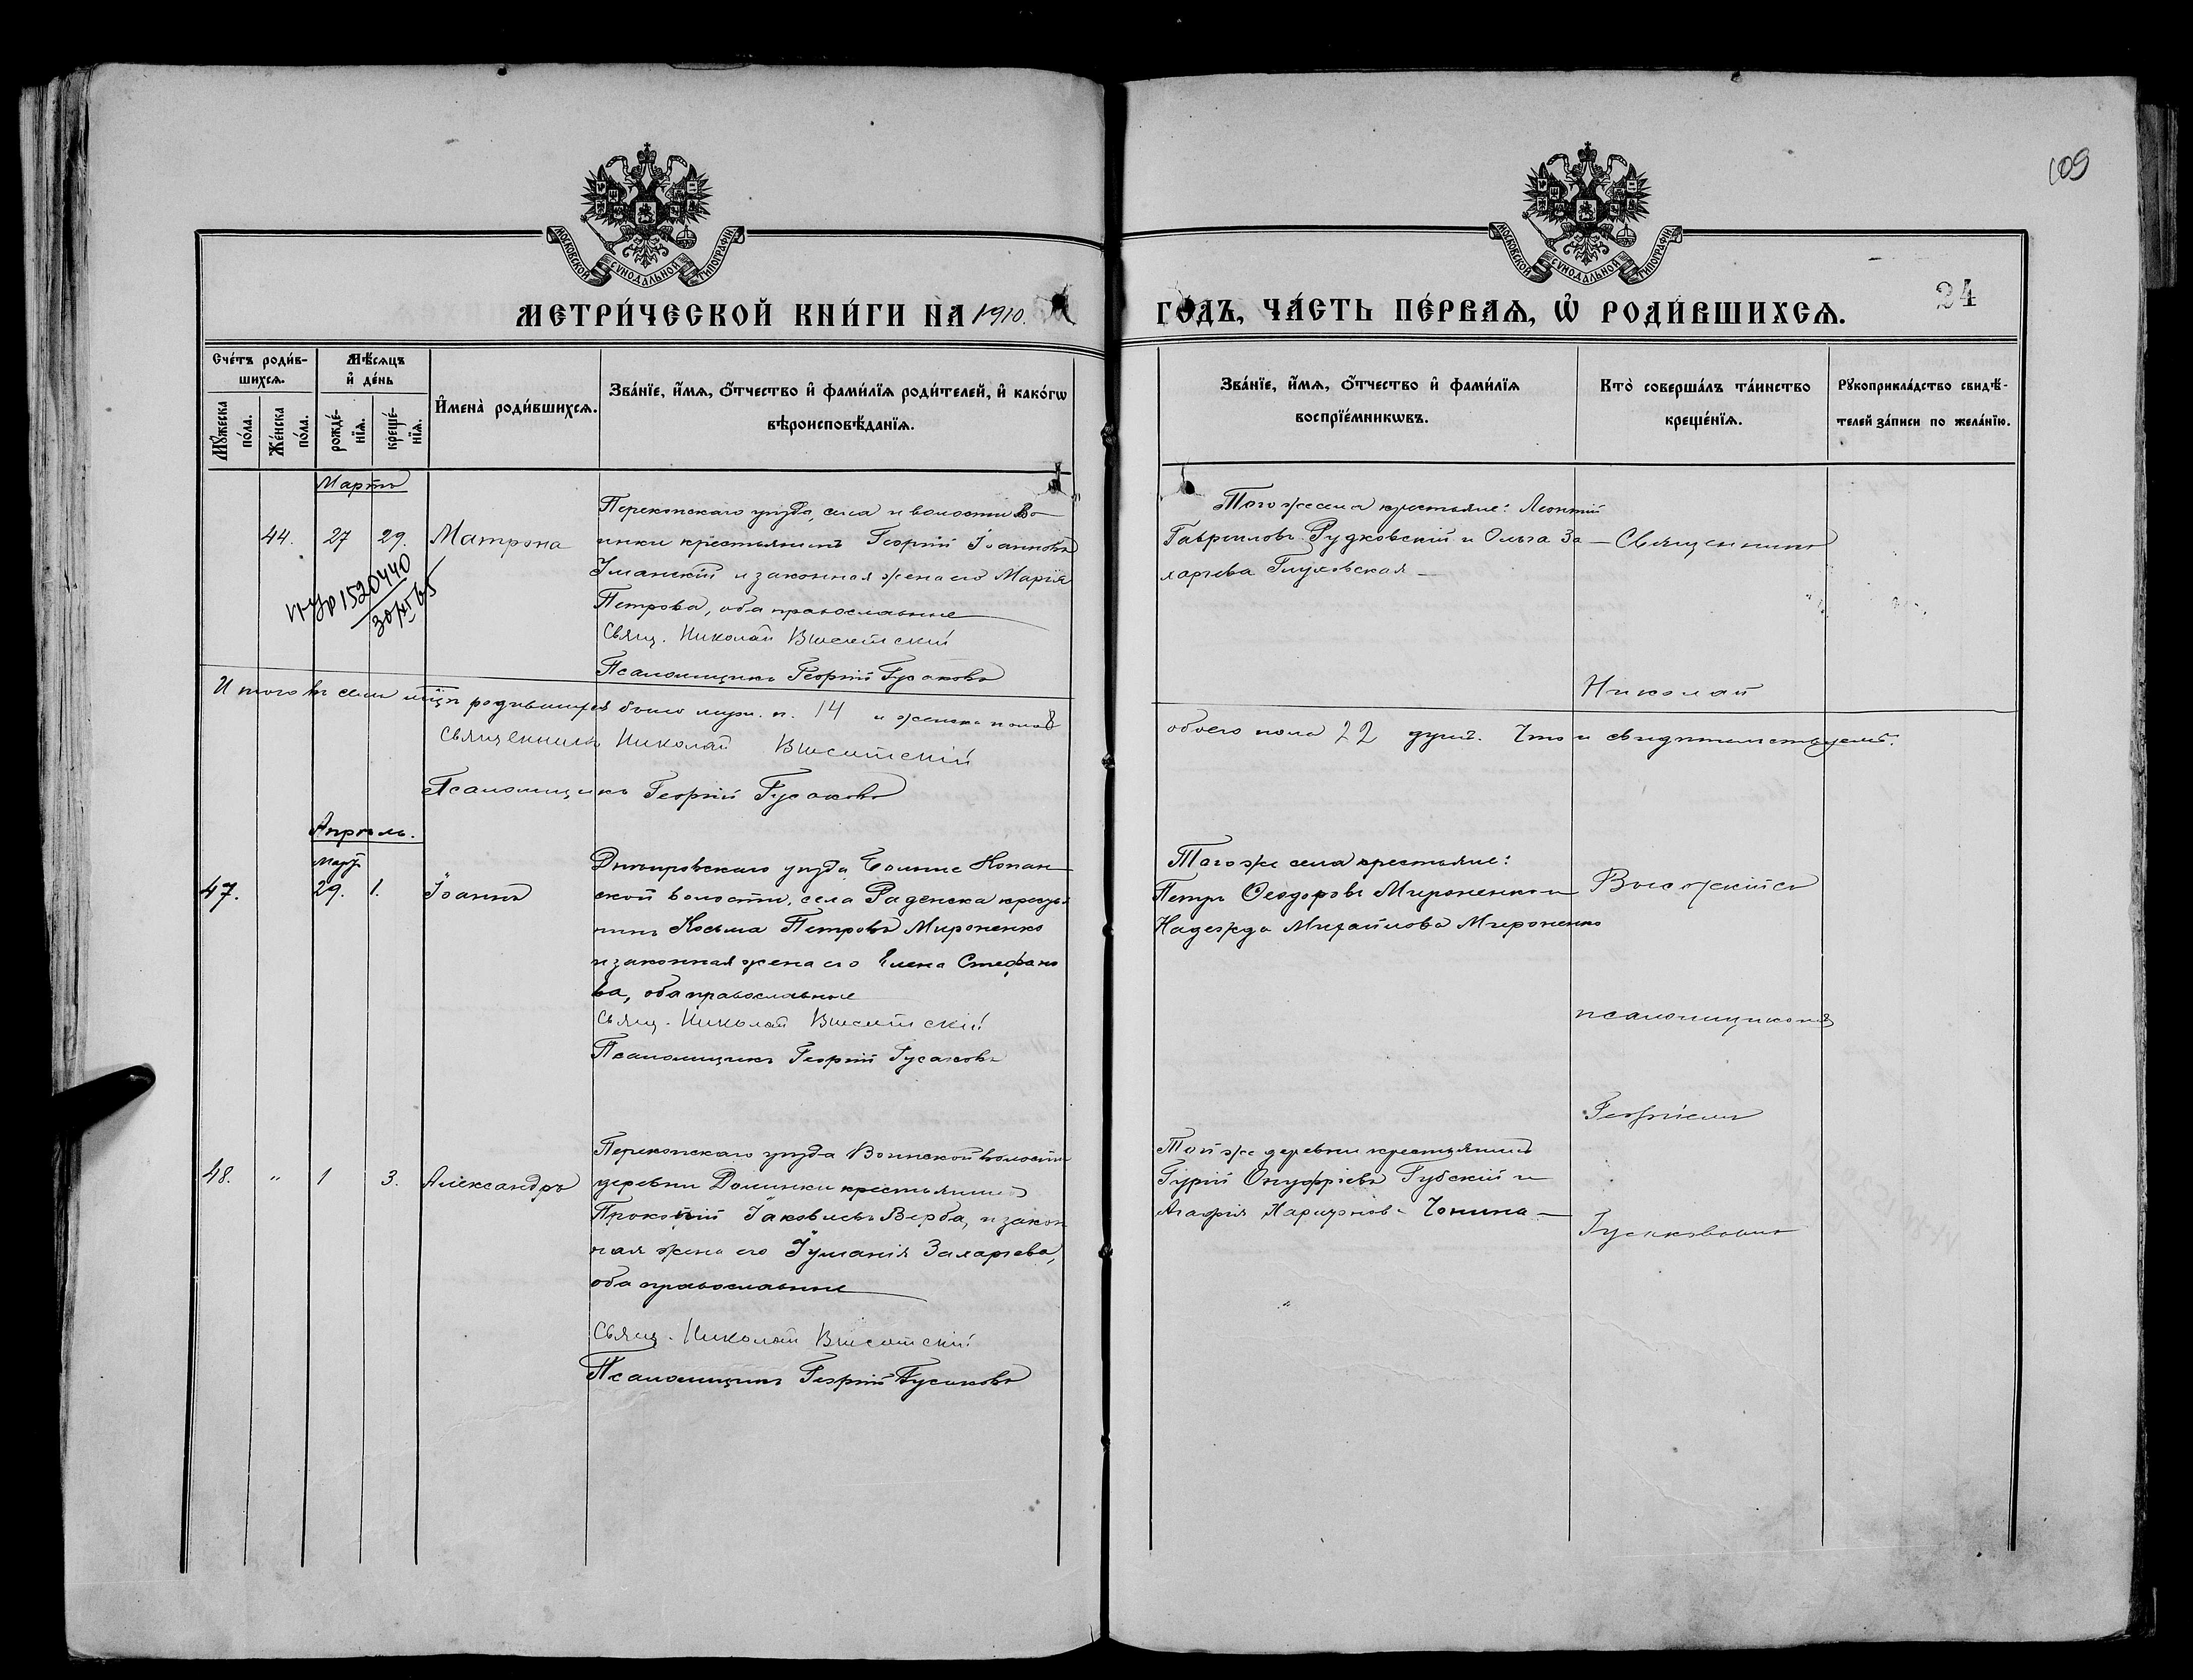 109
МОСКОВСКОЙ СѴНОДАЛЬНОЙ ТИПОГРАФІИ
МОСКОВСКОЙ СѴНОДАЛЬНОЙ ТИПОГРАФІИ
МЕТРИ́ЧЕСКОЙ КНИ́ГИ НА 1910.
ГО́ДЪ, ЧА́СТЬ ПЕ́РВАѦ, Ѡ҆ РОДИ́ВШИХСѦ.
24
Сче́тъ роди́в-
шихсѧ.
Мꙋ́жеска по́ла.
Же́нска по́ла.
Мѣ́сѧцъ
и҆ де́нь
рожде́-нїѧ.
креще́-нїѧ.
И҆мена̀ роди́вшихсѧ.
Зва́нїе, и҆́мѧ, ѻ҆́тчество и҆ фами́лїѧ роди́телей, и҆ како́гѡ
вѣроисповѣ́данїѧ.
Зва́нїе, и҆́мѧ, ѻ҆́тчество и҆ фами́лїѧ
воспрїе́мникѡвъ.
Кто̀ соверша́лъ та́инство
креще́нїѧ.
Рꙋкоприкла́дство свидѣ́-
телей за́писи по жела́нїю.
Мартъ
44. 27 29. Матрона
1520440
Перекопскаго уѣзда, села и волости Во-
инки крестьянинъ Георгій Іоанновъ
Уманскій и законная жена его Марія
Петрова, оба православные
Свящ. Николай Высотскій
Псаломщикъ Георгій Гусаковъ
Того же села крестьяне: Леонтій
Гавриловъ Рудковскій и Ольга За-
харіева Глуховская
Священникъ
Николай
Итого въ семъ мцѣ родившихся было муж. п. 14 и женска пола 8
обоего пола 22 душ. Что и свидѣтельствуемъ.
Священникъ Николай Высотскій
Псаломщикъ Георгій Гусаковъ
Апрѣль.
Март
47. 29. 1. Іоаннъ
Днѣпровскаго уѣзда Больше Копан-
ской волости, села Раденска кресть-
нинъ Косьма Петровъ Мироненко
и законная жена его Елена Стефано
ва, оба православные
Свящ. Николай Высотскій
Псаломщикъ Георгій Гусаковъ
Того же села крестьяне:
Петръ Ѳеодоровъ Мироненко и
Надежда Михайлова Мироненко
псаломщикомъ
Георгіемъ
48. " 1 3. Александръ
Перекопскаго уѣзда Воинской волости
деревни Долинки крестьянинъ
Прокопій Іаковлевъ Верба, и закон
ная жена его Іуліанія Захаріева,
оба православные
Свящ. Николай Высотскій
Псаломщикъ Георгій Гусаковъ
Той же деревни крестьянинъ
Гурій Онуфріевъ Губскій и
Агафія Харитонов
Гусаковымъ